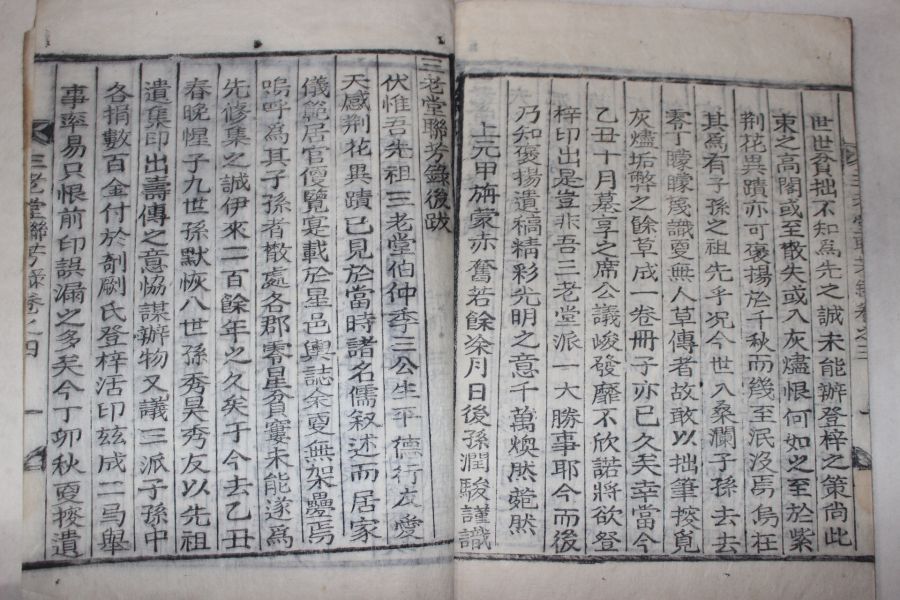 世世貧拙不知爲先之誠未能辦登梓之策尚此
束之高閣或至散失或入灰燼恨何如之至於紫
荆花異蹟亦可褒揚於千秋而幾至泯没焉烏在
其爲有子孫之祖先乎况今世入桑瀾子孫去去
零丁曚曚蔑識更無人草傳者故敢以拙筆搜覓
灰燼垢弊之餘草成一卷冊子亦已久矣幸當今
乙丑十月墓享之席公議峻發靡不欣諾將欲登
梓印出是豈非吾三老堂派一大勝事耶今而後
乃知褒揚遺稿精彩光明之意千萬煥然菀然
上元甲旃蒙赤奮若餘月日後孫潤駿謹識
三老堂聯芳錄後跋
伏惟吾先祖三老堂伯仲季三公生平德行友愛
天感荆花異蹟已見於當時諸名儒叙述而居家
儀範居官僾覽寔載於星邑輿誌余更無架疊焉
嗚呼爲其子孫者散處各郡零星貧寠未能遂爲
先修集之誠伊來二百餘年之久矣于今去乙丑
春晚惺子九世孫默恢八世孫秀昊秀友以先祖
遺集印出壽傳之意恊謀辦物又議三派子孫中
各捐數百金付於剞劂氏登梓活印玆成二写舉
事率易只恨前印誤漏之多矣今丁卯秋更搜遺
三老堂聯芳錄卷之四
一